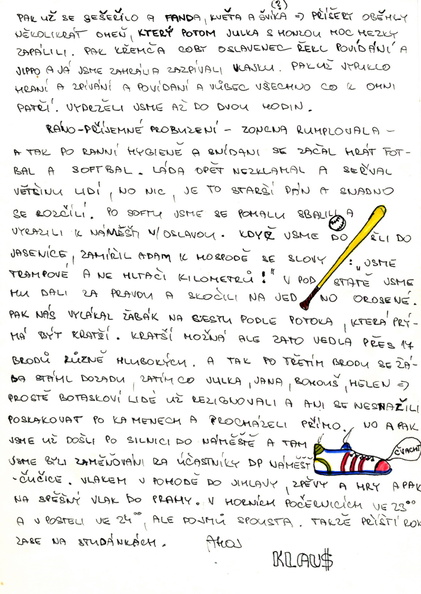 (8)
PAK UŽ SE SEŠEŘILO A FANDA, KVĚTA A ŠNEK => PŘÍŠEŘY OBĚHLY
NĚKOLIKRÁT OHEŇ, KTERÝ POTOM JULKA S HONZOU MOC HEZKY
ZAPÁLILI. PAK KŘEMČA COBY OSLAVENEC ŘEKL POVÍDÁNÍ A
JIPPO A JÁ JSME ZAHRÁLI A ZAZPÍVALI VLAJKU. PAK UŽ VYPUKLO
HRANÍ A ZPÍVÁNÍ A POVÍDÁNÍ A VŮBEC VŠECHNO CO K OHNI
PATŘÍ. VYDRŽELI JSME AŽ DO DVOU HODIN.
RÁNO - PŘÍJEMNÉ PROBUZENÍ - ZONCNA RUMPLOVALA -
A TAK PO RANNÍ HYGIENĚ A SNÍDANI SE ZAČAL HRÁT FOT-
BAL A SOFTBAL. LÁĎA OPĚT NEZKLAMAL A SEŘVAL
VĚTŠINU LIDÍ, NO NIC, JE TO STARŠÍ PÁN A SNADNO
SE ROZČÍLÍ. PO SOFTU JSME SE POMALU SBALILI A
VYRAZILI K NÁMĚŠTI N/OSLAVOU. KDYŽ JSME DOŠLI DO
JASENICE, ZAMÍŘIL ADAM K HOSPODĚ SE SLOVY : "JSME
TRAMPOVÉ A NE HLTAČI KILOMETRŮ!" V PODSTATĚ JSME
MU DALI ZA PRAVDU A SKOČILI NA JEDNO OROSENÉ.
PAK NÁS VYLÁKAL ŽABÁK NA CESTU PODLE POTOKA, KTERÁ PRÝ
MÁ BÝT KRATŠÍ. KRATŠÍ MOŽNÁ ALE ZATO VEDLA PŘES 17
BRODŮ RŮZNĚ HLUBOKÝCH. A TAK PO TŘETÍM BRODU SE ŽÁ-
BA STÁHL DOZADU, ZATÍMCO JULKA, JANA, BOHOUŠ, HELEN =>
PROSTĚ BOTASKOVÍ LIDÉ UŽ REZIGNOVALI A ANI SE NESNAŽILI
POSKAKOVAT PO KAMENECH A PROCHÁZELI PŘÍMO. NO A PAK
JSME UŽ DOŠLI PO SILNICI DO NÁMĚŠTĚ A TAM
JSME BYLI ZAMĚŇOVÁNI ZA ÚČASTNÍKY DP NÁMĚŠŤ
ČVACHT
-ČUČICE. VLAKEM V POHODĚ DO JIHLAVY, ZPĚVY A HRY A PAK
NA SPĚŠNÝ VLAK DO PRAHY. V HORNÍCH POČERNICÍCH VE 23⁰⁰
A V POSTELI VE 24⁰⁰, ALE DOJMŮ SPOUSTA. TAKŽE PŘÍŠTÍ ROK
ZASE NA STUDÁNKÁCH. AHOJ
KLAU$